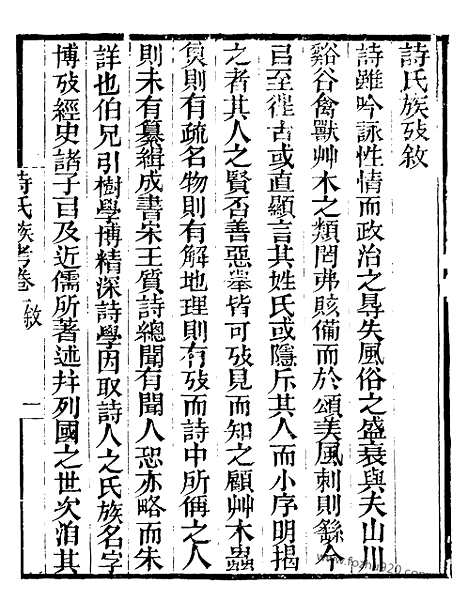 詩氏族攷敘
詩雖吟詠性情而政治之得失風俗之盛衰與夫山川
谿谷禽獸艸木之類罔弗賅備而於頌美風刺則繇今
㠯至徃古或直顯言其姓氏或隱斥其人而小序明揭
之者其人之賢否善惡舉皆可攷見而知之顧艸木蟲
魚則有疏名物則有解地理則有攷而詩中所偁之人
則未有纂緝成書宋王質詩總聞有聞人恐亦略而朱
詳也伯兄引樹學博精深詩學因取詩人之氏族名字
博攷經史諸子㠯及近儒所著述幷列國之世次洎其
詩氏族考卷 敘 一
www.fozhu920.com